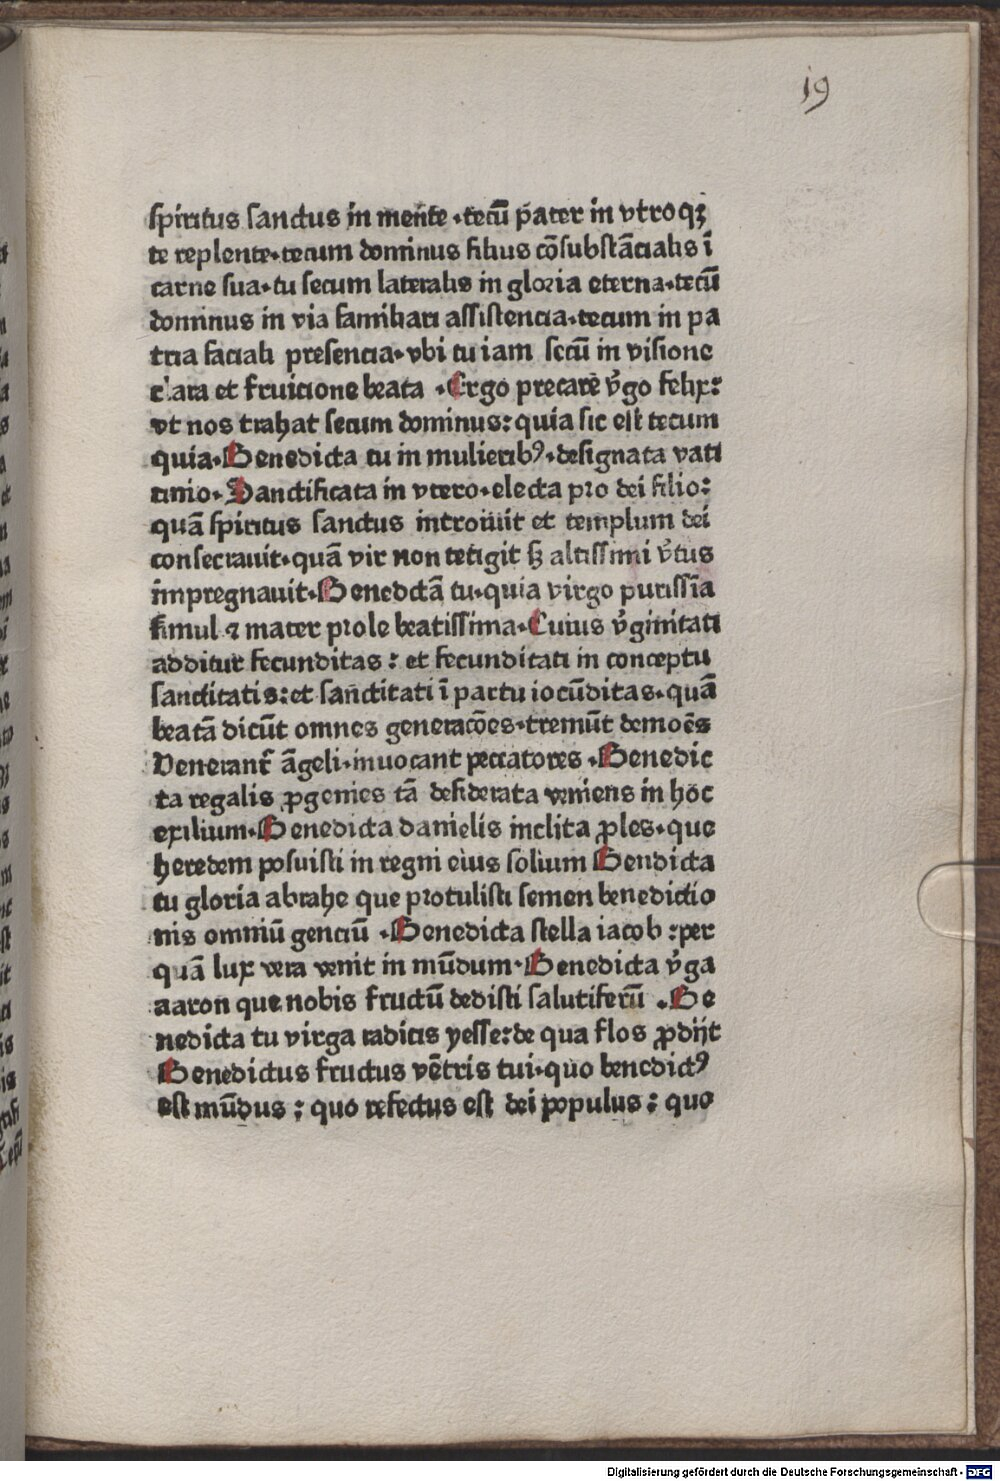 19
spiritus sanctus in mente · tecū pater in vtroqꝫ
te replente · tecum dominus filius cōsubstācialis ī
carne sua · tu secum lateralis in gloria eterna · tecū
dominus in via familiari assistencia · tecum in pa
tria faciali presencia · vbi tu iam secū in visione
clara et fruicione beata · Ergo precarē v̄go felix:
vt nos trahat secum dominus: quia sic est tecum
quia · Benedicta tu in mulieribꝰ · designata vati
cinio · Sanctificata in vtero · electa pro dei filio:
quā spiritus sanctus introiuit et templum dei
consecrauit · quā vir non tetigit sꝫ altissimi v̄tus
impregnauit · Benedctā tu · quia virgo purissīa
simul ⁊ mater prole beatissima · Cuius v̄ginitati
additur fecunditas: et fecunditati in conceptu
sanctitatis: et sanctitati ī partu iocūditas · quā
beatā dicūt omnes generacōes · tremūt demoēs
Venerant᷑ āgeli · inuocant peccatores · Benedic
ta regalis ꝓgenies tā desiderata veniens in hoc
exilium · Benedicta danielis inclita ꝓles · que
heredem posuisti in regni eius solium Bendicta
tu gloria abrahe que protulisti semen benedictio
nis omniū genciū · Benedicta stella iacob: per
quā lux vera venit in mūdum · Benedicta v̄ga
aaron que nobis fructū dedisti salutiferū · Be
nedicta tu virga radicis yesse: de qua flos ꝓdijt
Benedictus fructus vētris tui · quo benedictꝰ
est mūdus: quo refectus est dei populus: quo
Digitalisierung gefördert durch die Deutsche Forschungsgemeinschaft - DFG